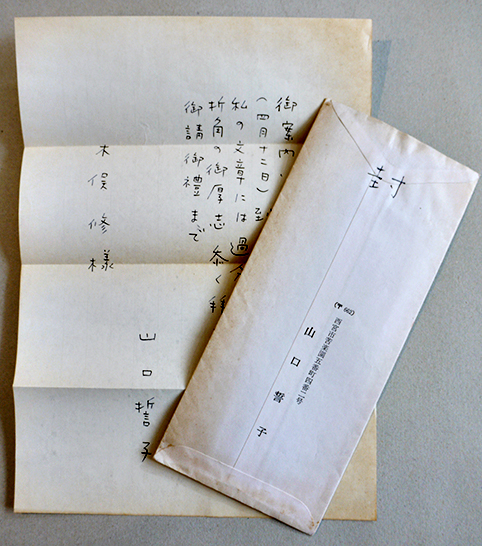 御案内
(四月十二日)至
私の文章には過
折角の御厚志忝く拝
御請御禮まで
木俣修様
山口誓子
封
(〒662)
西宮市苦楽園五番町四番二号
山口誓子